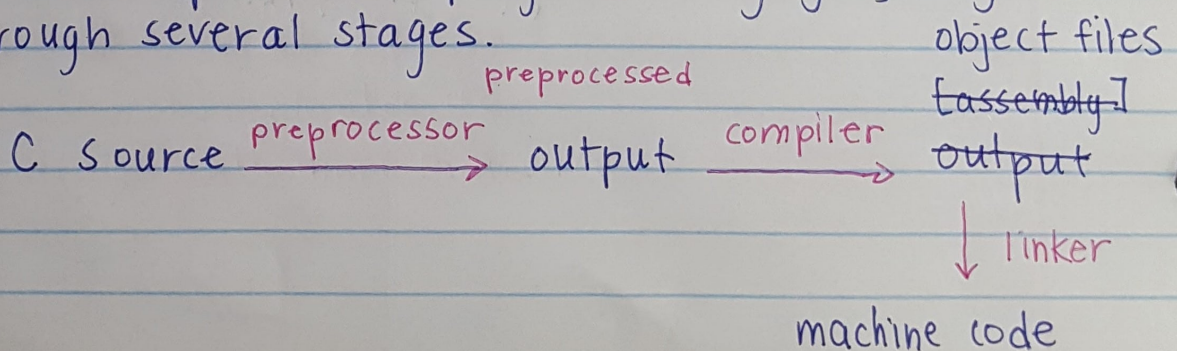 rough several stages.
object files
preprocessed
[assembly]
C source preprocessor output compiler output
linker
machine code